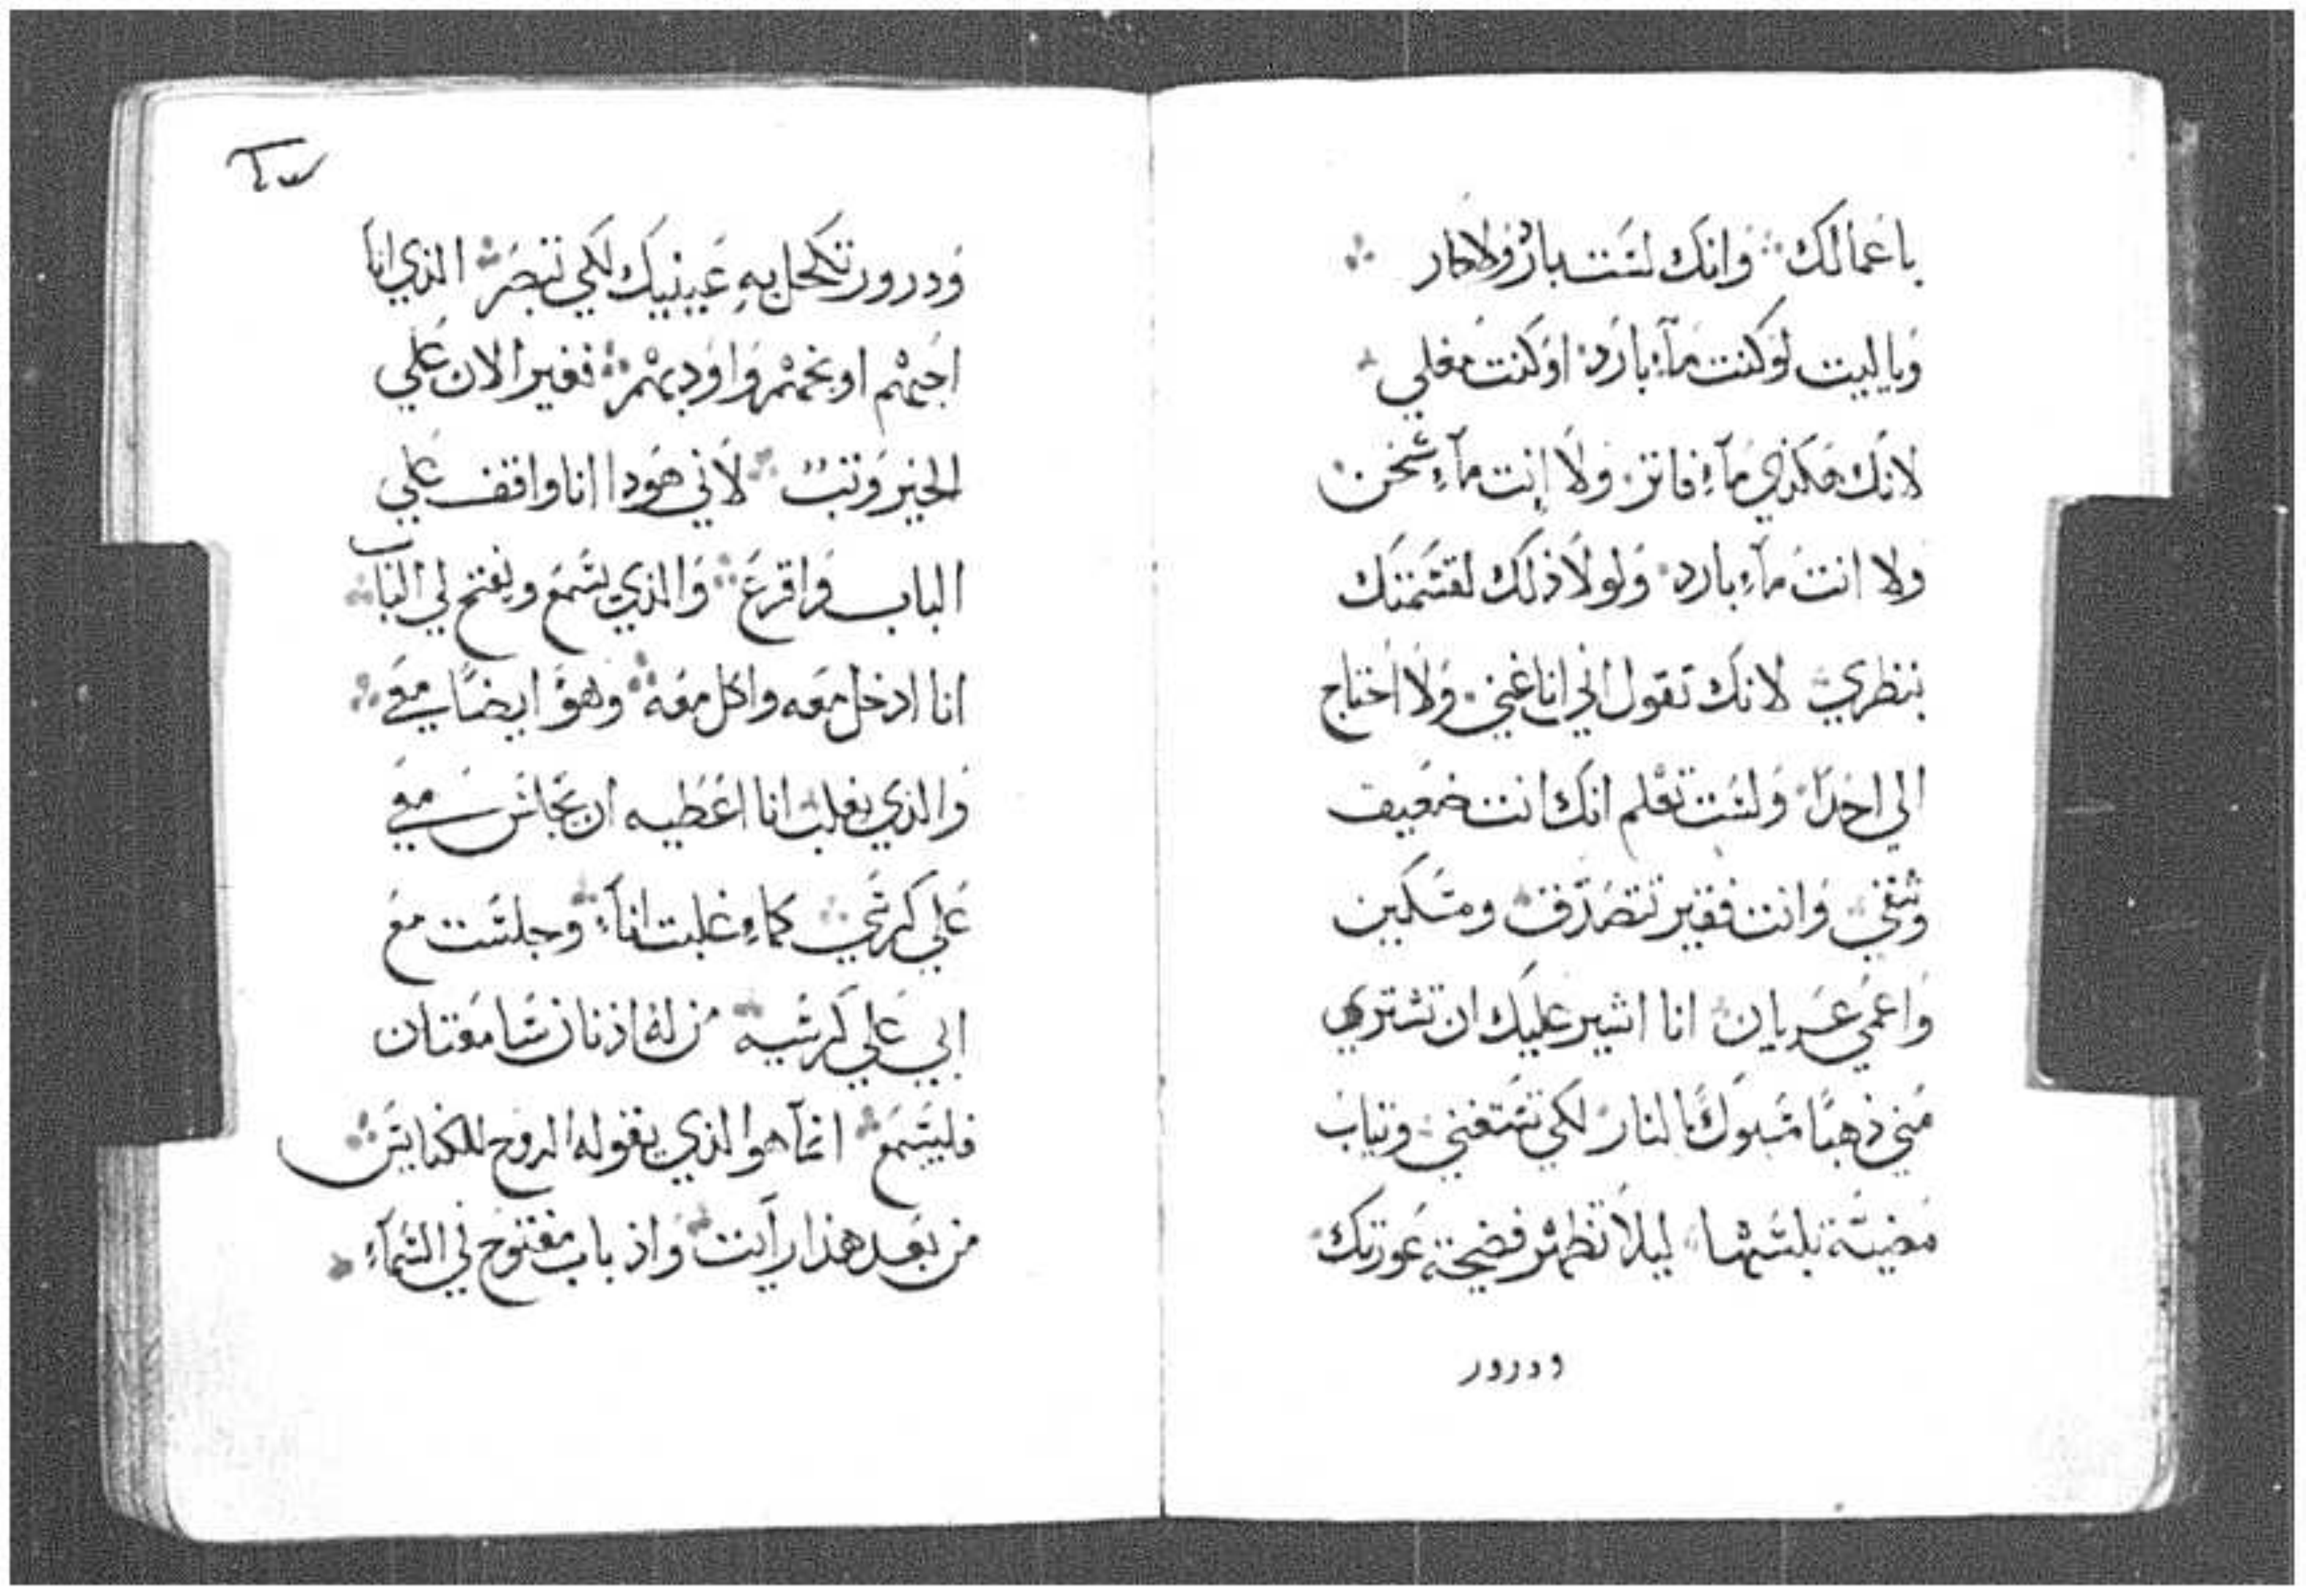 باعمالك وانك لست بارد ولا حار
وياليت لو كنت مآء بارد او كنت مغلي
لانك هكذي مآء فاتر ولا انت مآء سخن
ولا انت مآء بارد ولولا ذلك لقسمتك
بنظري لانك تقول اني انا غني ولا احتاج
الي احدا ولست تعلم انك انت ضعيف
وشقي وانت فقير تتصدق ومسكين
واعمي عريان انا اشير عليك ان تشتري
مني ذهبا مسبوكا بالنار لكي تستغني وتياب
مضيّة تلبسها ليلا تظهر فضيحة عورتك
ودرور
ودرور تكحل به عينيك لكي تبصر الذي انا
احبهم اوبخهم واودبهم فغير الان علي
الخير وتب لاني هودا انا واقف علي
الباب واقرع والذي يسمع ويفتح لي الباب
انا ادخل معه واكل معه وهو ايضًا معي
والذي يغلب انا اعطيه ان يجلس معي
علي كرسي كما غلبت انا وجلست مع
ابي علي كرسيه من له اذنان سامعتان
فليسمع انما هو الذي يقوله الروح للكنايس
من بعد هذا رايت واذ باب مفتوح في السمآء